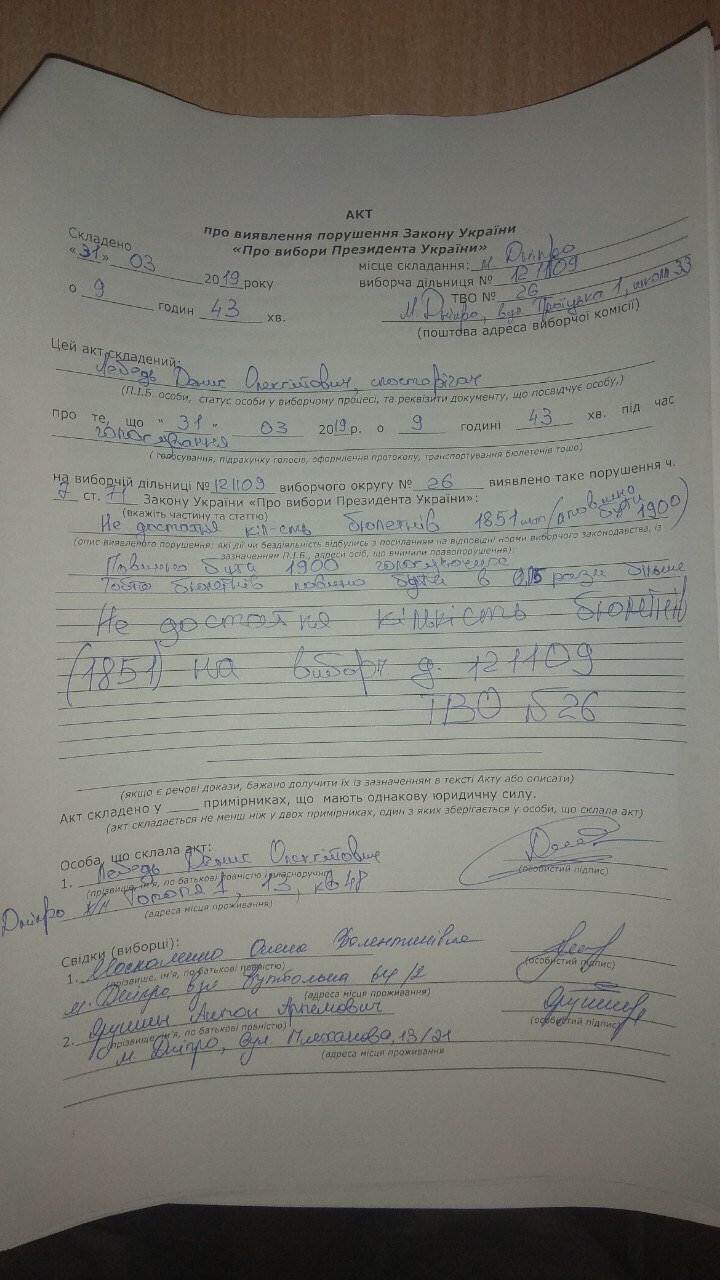 АКТ
про виявлення порушення Закону України
«Про вибори Президента України»
Складено
«31» 03 2019 року
о 9 годин 43 хв.
місце складання: м. Дніпро
виборча дільниця № 121109
ТВО № 26
м. Дніпро, вул. Троїцька 1, школа 33
(поштова адреса виборчої комісії)
Цей акт складений:
Лебедь Денис Олексійович, спостерігач
(П.І.Б. особи, статус особи у виборчому процесі, та реквізити документу, що посвідчує особу,)
про те, що "31" 03 2019 р. о 9 годині 43 хв. під час
голосування
( голосування, підрахунку голосів, оформлення протоколу, транспортування бюлетенів тощо)
на виборчій дільниці № 121109 виборчого округу № 26 виявлено таке порушення ч.
7 ст. 71 Закону України «Про вибори Президента України»:
(вкажіть частину та статтю)
Не достатня кіл-сть бюлетнів 1851 шт (повинно бути 1900)
(опис виявленого порушення: які дії чи бездіяльність відбулись з посиланням на відповідні норми виборчого законодавства, із
зазначенням П.І.Б., адреси осіб, що вчинили правопорушення);
Повинно бути 1900
Тобто бюлетнів повинно бути в рази більше
Не достатня кількість бюлетнів
(1851) на виборч. д. 121109
ТВО №26
(якщо є речові докази, бажано долучити їх із зазначенням в тексті Акту або описати)
Акт складено у ____ примірниках, що мають однакову юридичну силу.
(акт складається не менш ніж у двох примірниках, один з яких зберігається у особи, що склала акт)
Особа, що склала акт:
1. Лебедь Денис Олексійович
(прізвище, ім'я, по батькові повністю власноручно)
(особистий підпис)
Дніпро ж/м Тополя 1, 13, кв 48
(адреса місця проживання)
Свідки (виборці):
1. Москаленко Олена Валентинівна
(прізвище, ім'я, по батькові повністю)
(особистий підпис)
м. Дніпро вул Футбольна
(адреса місця проживання)
2. Антон Артемович
(прізвище, ім'я, по батькові повністю)
(особистий підпис)
м. Дніпро, вул Плеханова 13/21
(адреса місця проживання